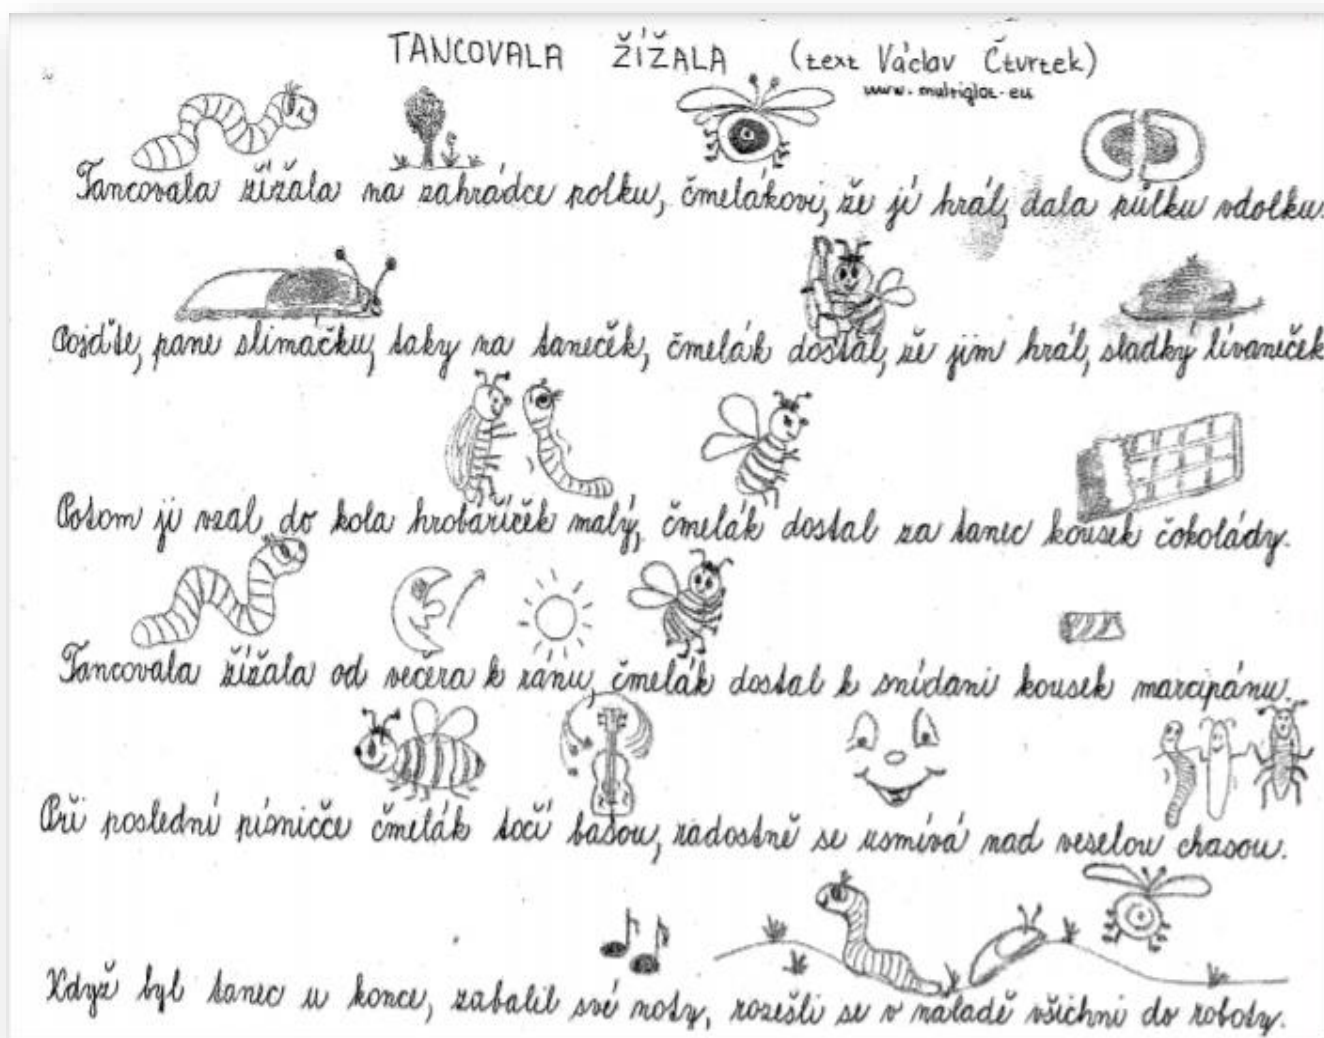 TANCOVALA ŽÍŽALA (text Václav Čtvrtek)
www.multiglot.eu
Tancovala žížala na zahrádce polku, čmelákovi, že jí hrál, dala půlku vdolku.
Pojďte, pane slimáčku, taky na taneček, čmelák dostal, že jim hrál, sladký lívaneček
Potom ji vzal do kola hrobaříček malý, čmelák dostal za tanec kousek čokolády.
Tancovala žížala od večera k ránu, čmelák dostal k snídani kousek marcipánu.
Při poslední písničce čmelák točí basou, radostně se usmívá nad veselou chasou.
Když byl tanec u konce, zabalil své noty, rozešli se v náladě všichni do roboty.